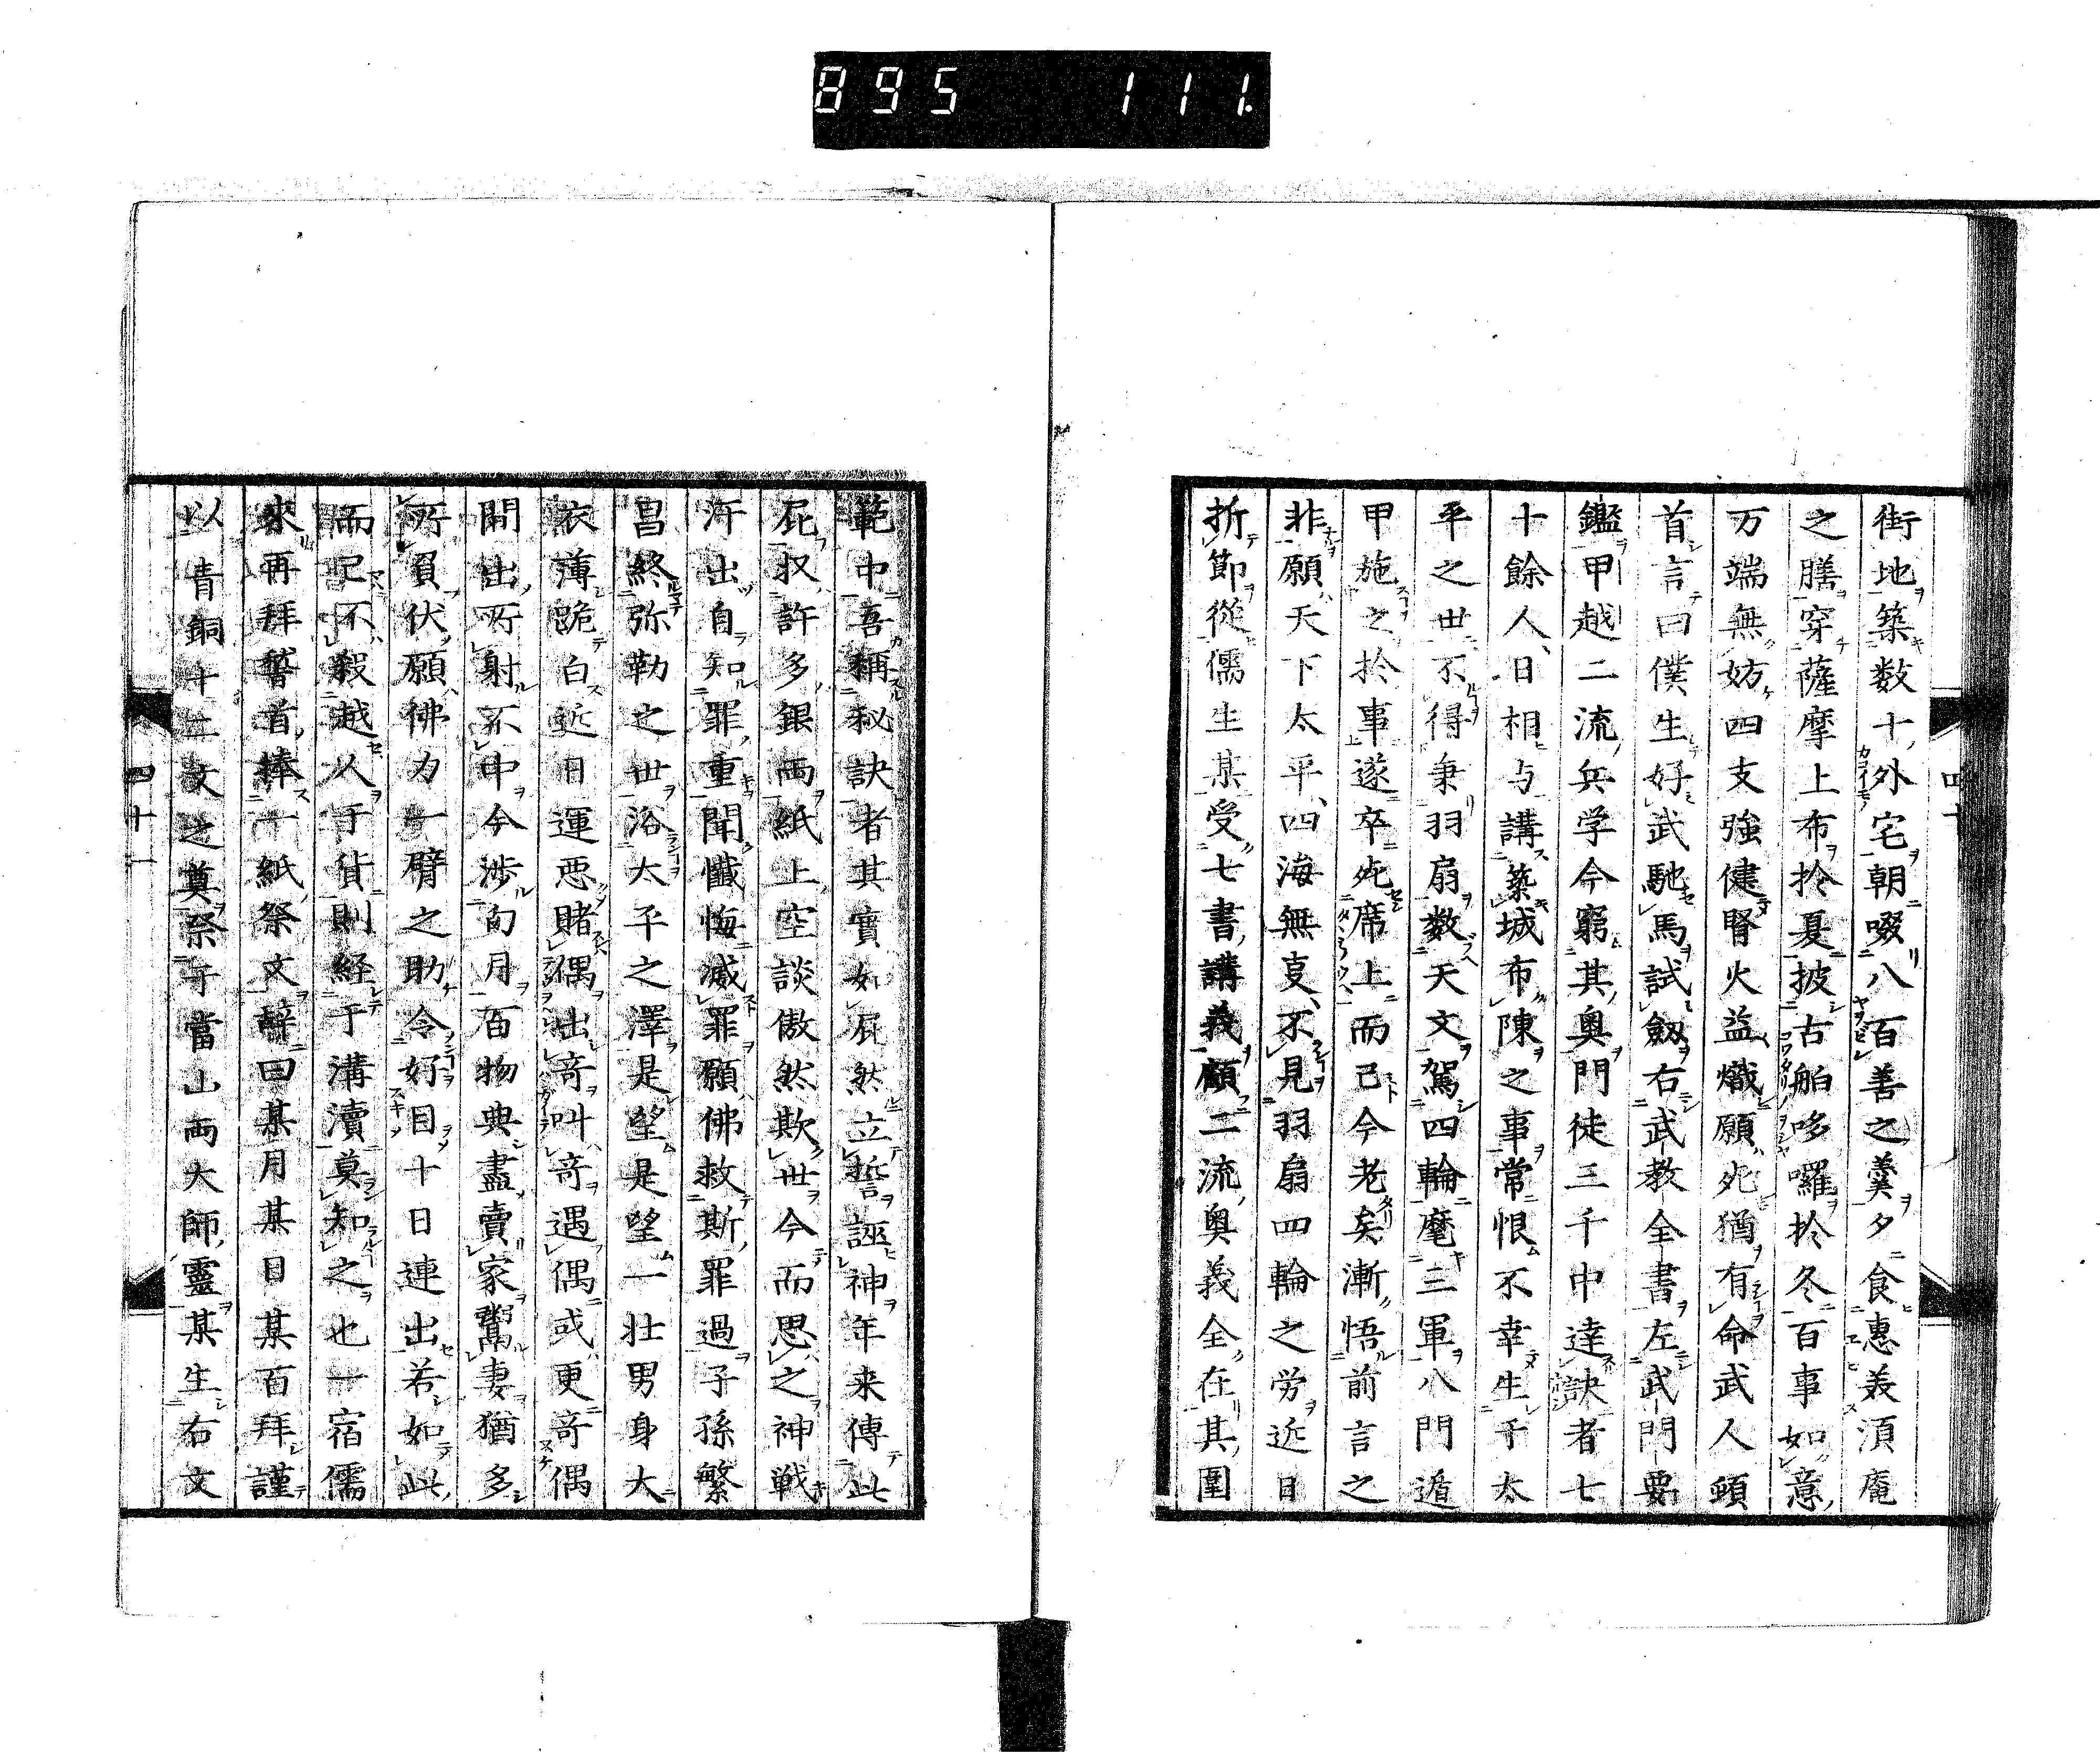 895 111.
街地築数十外宅朝啜八百善之羹夕食惠美須庵
之膳穿薩摩上布於夏披古舶哆囉於冬百事如意
万端無妨四支強健腎火益熾願死猶有命武人頓
首言曰僕生好武馳馬試劔右武教全書左武門要
鑑甲越二流兵学今窮其奥門徒三千中達訣者七
十餘人日相与講築城布陳之事常恨不幸生于太
平之世不得秉羽扇数天文駕四輪麾三軍八門遁
甲施之於事遂卒死席上而已今老矣漸悟前言之
非願天下太平四海無㕝不見羽扇四輪之労近日
折節従儒生某受七書講義願二流奥義全在其圍
四十
範中吾稱秘訣者其實如屁然立誓誣神年来傳此
屁収許多銀両紙上空談傲然欺世今而思之神戦
汗出自知罪重聞懺悔滅罪願佛救斯罪過子孫繁
昌終弥勒之世浴太平之澤是望是望一壮男身大
衣薄跪白近日運悪賭偶出奇叫奇遇偶或更奇偶
開出所射不中今渉旬月百物典盡賣家鬻妻猶多
所負伏願佛力一臂之助令好目十日連出若如此
而已不殺越人于貨則経于溝瀆莫知之也一宿儒
來再拜稽首捧一紙祭文辭曰某月某日某百拜謹
以青銅十二文之奠祭于當山両大師靈某生右文
四十一